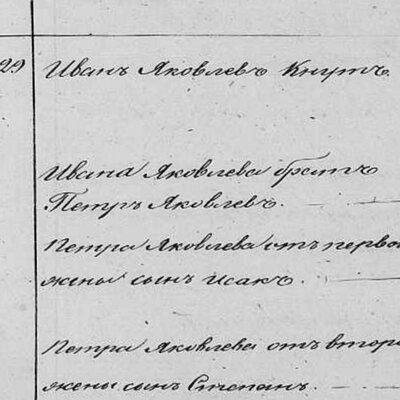 29 Иванъ Яковлевъ Кнутъ
Ивана Яковлева братъ
Петръ Яковлевъ.
Петра Яковлева отъ первой
жены сынъ Исакъ.
Петра Яковлева отъ второ
жены сынъ Степанъ.